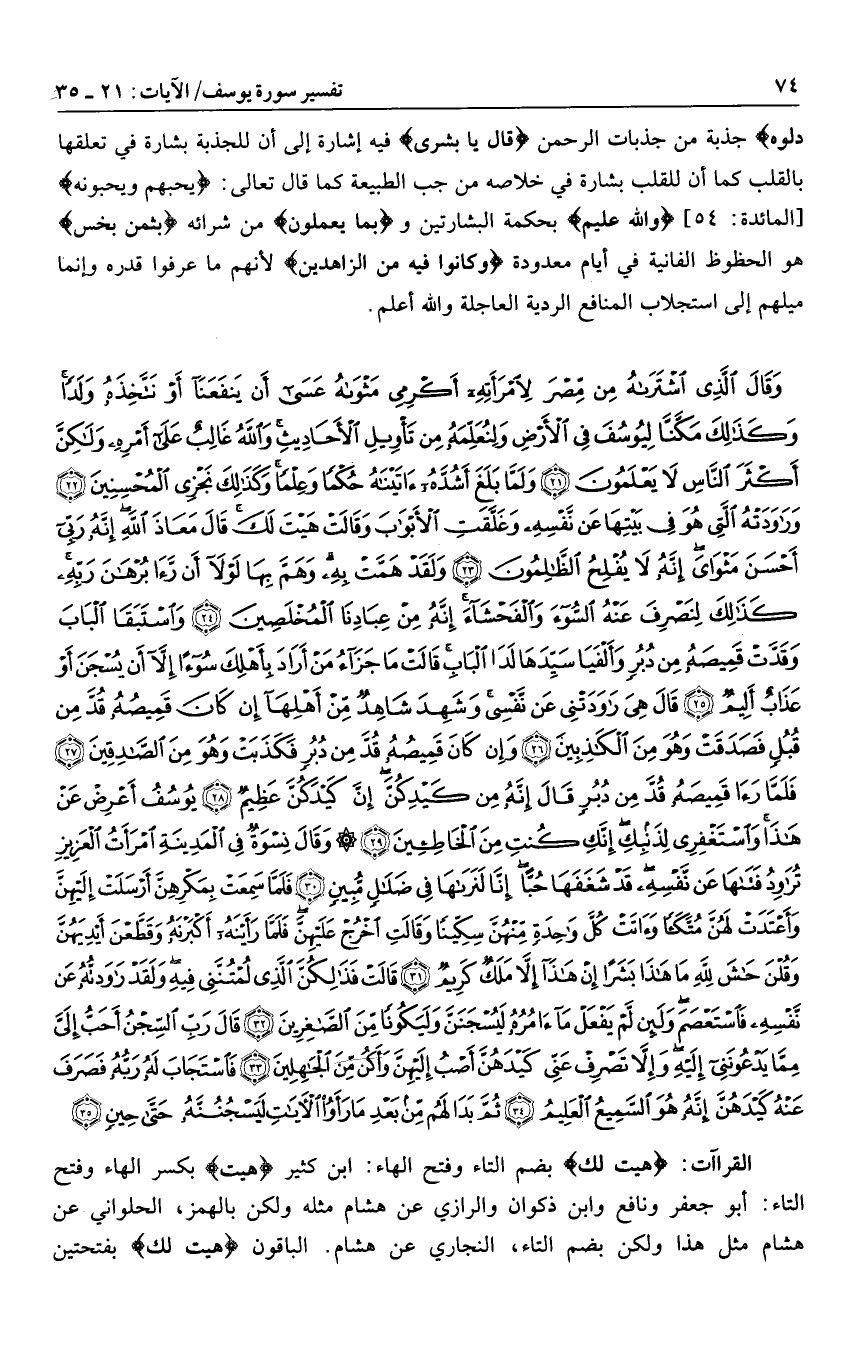 ٧٤ تفسير سورة يوسف/ الآيات: ٢١ ـ ٣٥
دلوه﴾ جذبة من جذبات الرحمن ﴿قال يا بشرى﴾ فيه إشارة إلى أن للجذبة بشارة في تعلقها
بالقلب كما أن للقلب بشارة في خلاصه من جب الطبيعة كما قال تعالى: ﴿يحبهم ويحبونه﴾
[المائدة: ٥٤] ﴿والله عليم﴾ بحكمة البشارتين و ﴿بما يعملون﴾ من شرائه ﴿بثمن بخس﴾
هو الحظوظ الفانية في أيام معدودة ﴿وكانوا فيه من الزاهدين﴾ لأنهم ما عرفوا قدره وإنما
ميلهم إلى استجلاب المنافع الردية العاجلة والله أعلم.
وَقَالَ ٱلَّذِى ٱشْتَرَىٰهُ مِن مِّصْرَ لِٱمْرَأَتِهِۦٓ أَكْرِمِى مَثْوَىٰهُ عَسَىٰٓ أَن يَنفَعَنَآ أَوْ نَتَّخِذَهُۥ وَلَدًا ۚ
وَكَذَٰلِكَ مَكَّنَّا لِيُوسُفَ فِى ٱلْأَرْضِ وَلِنُعَلِّمَهُۥ مِن تَأْوِيلِ ٱلْأَحَادِيثِ ۚ وَٱللَّهُ غَالِبٌ عَلَىٰٓ أَمْرِهِۦ وَلَٰكِنَّ
أَكْثَرَ ٱلنَّاسِ لَا يَعْلَمُونَ ٢١ وَلَمَّا بَلَغَ أَشُدَّهُۥٓ ءَاتَيْنَٰهُ حُكْمًا وَعِلْمًا ۚ وَكَذَٰلِكَ نَجْزِى ٱلْمُحْسِنِينَ ٢٢
وَرَٰوَدَتْهُ ٱلَّتِى هُوَ فِى بَيْتِهَا عَن نَّفْسِهِۦ وَغَلَّقَتِ ٱلْأَبْوَٰبَ وَقَالَتْ هَيْتَ لَكَ ۚ قَالَ مَعَاذَ ٱللَّهِ ۖ إِنَّهُۥ رَبِّىٓ
أَحْسَنَ مَثْوَاىَ ۖ إِنَّهُۥ لَا يُفْلِحُ ٱلظَّٰلِمُونَ ٢٣ وَلَقَدْ هَمَّتْ بِهِۦ ۖ وَهَمَّ بِهَا لَوْلَآ أَن رَّءَا بُرْهَٰنَ رَبِّهِۦ ۚ
كَذَٰلِكَ لِنَصْرِفَ عَنْهُ ٱلسُّوٓءَ وَٱلْفَحْشَآءَ ۚ إِنَّهُۥ مِنْ عِبَادِنَا ٱلْمُخْلَصِينَ ٢٤ وَٱسْتَبَقَا ٱلْبَابَ
وَقَدَّتْ قَمِيصَهُۥ مِن دُبُرٍ وَأَلْفَيَا سَيِّدَهَا لَدَا ٱلْبَابِ ۚ قَالَتْ مَا جَزَآءُ مَنْ أَرَادَ بِأَهْلِكَ سُوٓءًا إِلَّآ أَن يُسْجَنَ أَوْ
عَذَابٌ أَلِيمٌ ٢٥ قَالَ هِىَ رَٰوَدَتْنِى عَن نَّفْسِى ۚ وَشَهِدَ شَاهِدٌ مِّنْ أَهْلِهَآ إِن كَانَ قَمِيصُهُۥ قُدَّ مِن
قُبُلٍ فَصَدَقَتْ وَهُوَ مِنَ ٱلْكَٰذِبِينَ ٢٦ وَإِن كَانَ قَمِيصُهُۥ قُدَّ مِن دُبُرٍ فَكَذَبَتْ وَهُوَ مِنَ ٱلصَّٰدِقِينَ ٢٧
فَلَمَّا رَءَا قَمِيصَهُۥ قُدَّ مِن دُبُرٍ قَالَ إِنَّهُۥ مِن كَيْدِكُنَّ ۖ إِنَّ كَيْدَكُنَّ عَظِيمٌ ٢٨ يُوسُفُ أَعْرِضْ عَنْ
هَٰذَا ۚ وَٱسْتَغْفِرِى لِذَنۢبِكِ ۖ إِنَّكِ كُنتِ مِنَ ٱلْخَاطِـِٔينَ ٢٩ ۞ وَقَالَ نِسْوَةٌ فِى ٱلْمَدِينَةِ ٱمْرَأَتُ ٱلْعَزِيزِ
تُرَٰوِدُ فَتَىٰهَا عَن نَّفْسِهِۦ ۖ قَدْ شَغَفَهَا حُبًّا ۖ إِنَّا لَنَرَىٰهَا فِى ضَلَٰلٍ مُّبِينٍ ٣٠ فَلَمَّا سَمِعَتْ بِمَكْرِهِنَّ أَرْسَلَتْ إِلَيْهِنَّ
وَأَعْتَدَتْ لَهُنَّ مُتَّكَـًٔا وَءَاتَتْ كُلَّ وَٰحِدَةٍ مِّنْهُنَّ سِكِّينًا وَقَالَتِ ٱخْرُجْ عَلَيْهِنَّ ۖ فَلَمَّا رَأَيْنَهُۥٓ أَكْبَرْنَهُۥ وَقَطَّعْنَ أَيْدِيَهُنَّ
وَقُلْنَ حَٰشَ لِلَّهِ مَا هَٰذَا بَشَرًا إِنْ هَٰذَآ إِلَّا مَلَكٌ كَرِيمٌ ٣١ قَالَتْ فَذَٰلِكُنَّ ٱلَّذِى لُمْتُنَّنِى فِيهِ ۖ وَلَقَدْ رَٰوَدتُّهُۥ عَن
نَّفْسِهِۦ فَٱسْتَعْصَمَ ۖ وَلَئِن لَّمْ يَفْعَلْ مَآ ءَامُرُهُۥ لَيُسْجَنَنَّ وَلَيَكُونًا مِّنَ ٱلصَّٰغِرِينَ ٣٢ قَالَ رَبِّ ٱلسِّجْنُ أَحَبُّ إِلَىَّ
مِمَّا يَدْعُونَنِىٓ إِلَيْهِ ۖ وَإِلَّا تَصْرِفْ عَنِّى كَيْدَهُنَّ أَصْبُ إِلَيْهِنَّ وَأَكُن مِّنَ ٱلْجَٰهِلِينَ ٣٣ فَٱسْتَجَابَ لَهُۥ رَبُّهُۥ فَصَرَفَ
عَنْهُ كَيْدَهُنَّ ۚ إِنَّهُۥ هُوَ ٱلسَّمِيعُ ٱلْعَلِيمُ ٣٤ ثُمَّ بَدَا لَهُم مِّنۢ بَعْدِ مَا رَأَوُا۟ ٱلْءَايَٰتِ لَيَسْجُنُنَّهُۥ حَتَّىٰ حِينٍ ٣٥
القراآت: ﴿هيت لك﴾ بضم التاء وفتح الهاء: ابن كثير ﴿هيت﴾ بكسر الهاء وفتح
التاء: أبو جعفر ونافع وابن ذكوان والرازي عن هشام مثله ولكن بالهمز، الحلواني عن
هشام مثل هذا ولكن بضم التاء، النجاري عن هشام. الباقون ﴿هيت لك﴾ بفتحتين